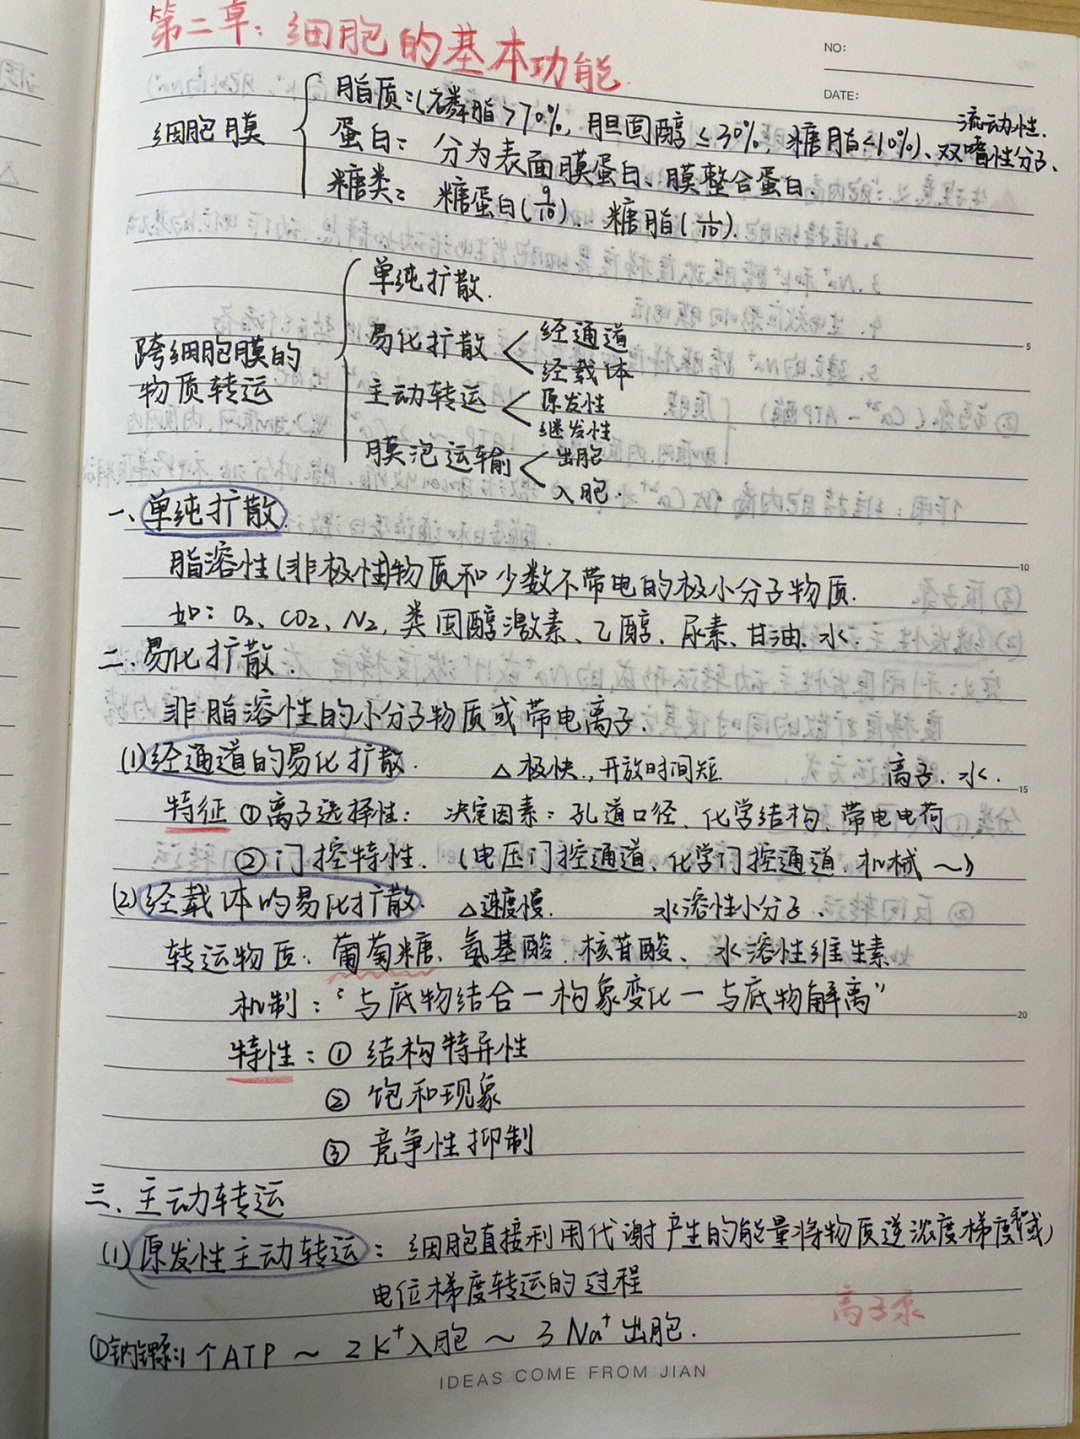 第二章：细胞的基本功能
NO:
DATE:
细胞膜
脂质：(磷脂>70%，胆固醇≤30%，糖脂≤10%)、双嗜性分子、流动性.
蛋白：分为表面膜蛋白、膜整合蛋白.
糖类：糖蛋白(9/10) 糖脂(1/10).
跨细胞膜的物质转运
单纯扩散.
易化扩散 < 经通道
经载体
主动转运 < 原发性
继发性
膜泡运输 < 出胞
入胞.
一、单纯扩散.
脂溶性(非极性)物质和少数不带电的极小分子物质.
如：O₂、CO₂、N₂、类固醇激素、乙醇、尿素、甘油、水
二、易化扩散.
非脂溶性的小分子物质或带电离子.
(1)经通道的易化扩散. △极快.,开放时间短. 离子、水.
特征 ①离子选择性：决定因素：孔道口径、化学结构、带电电荷
②门控特性.（电压门控通道、化学门控通道、机械～）
(2)经载体的易化扩散. △速度慢. 水溶性小分子.
转运物质：葡萄糖、氨基酸、核苷酸、水溶性维生素
机制：“与底物结合一构象变化一与底物解离”
特性：① 结构特异性
② 饱和现象
③ 竞争性抑制
三、主动转运
(1)原发性主动转运：细胞直接利用代谢产生的能量将物质逆浓度梯度(或)
电位梯度转运的过程
离子泵
①钠钾泵:1个ATP～2K⁺入胞～3Na⁺出胞.
5
10
15
20
IDEAS COME FROM JIAN